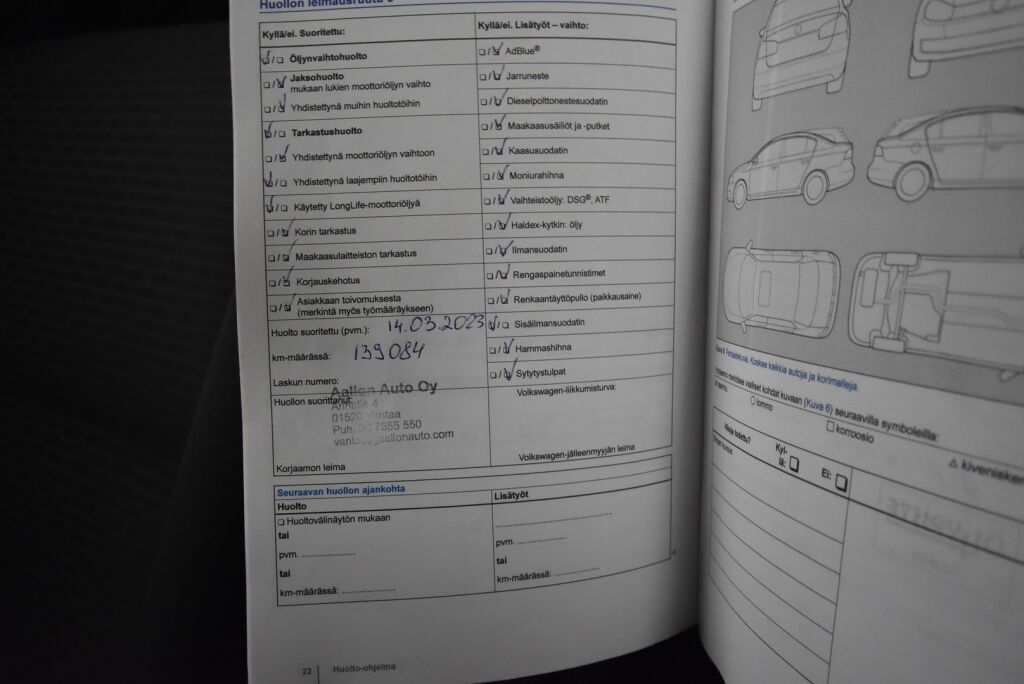 Huollon leimausruutu
Kyllä/ei. Suoritettu:
Öljynvaihtohuolto
Jaksohuolto
mukaan lukien moottoriöljyn vaihto
Yhdistettynä muihin huoltotöihin
Tarkastushuolto
Yhdistettynä moottoriöljyn vaihtoon
Yhdistettynä laajempiin huoltotöihin
Käytetty LongLife-moottoriöljyä
Korin tarkastus
Maakaasulaitteiston tarkastus
Korjauskehotus
Asiakkaan toivomuksesta
(merkintä myös työmääräykseen)
Huolto suoritettu (pvm.): 14.03.2023
km-määrässä: 139084
Laskun numero:
Huollon suorittanut:
Aallon Auto Oy
4
01520 Vantaa
Puh. 7555 550
Korjaamon leima
Kyllä/ei. Lisätyöt – vaihto:
AdBlue®
Jarruneste
Dieselpolttonestesuodatin
Maakaasusäiliöt ja -putket
Kaasusuodatin
Moniurahihna
Vaihteistoöljy: DSG®, ATF
Haldex-kytkin: öljy
Ilmansuodatin
Rengaspainetunnistimet
Renkaantäyttöpullo (paikkausaine)
Sisäilmansuodatin
Hammashihna
Sytytystulpat
Volkswagen-liikkumisturva:
Volkswagen-jälleenmyyjän leima
Seuraavan huollon ajankohta
Huolto
Huoltovälinäytön mukaan
tai
pvm. ....................
tai
km-määrässä: ....................
Lisätyöt
pvm. ..................
tai
km-määrässä: ..................
22 Huolto-ohjelma
Koskee kaikkia autoja ja korimalleja.
merkitsee valiset kohdat kuvaan (Kuva 6) seuraavilla symboleilla:
lommo
korroosio
Vikoja todettu?
Kyl-
lä:
Ei: